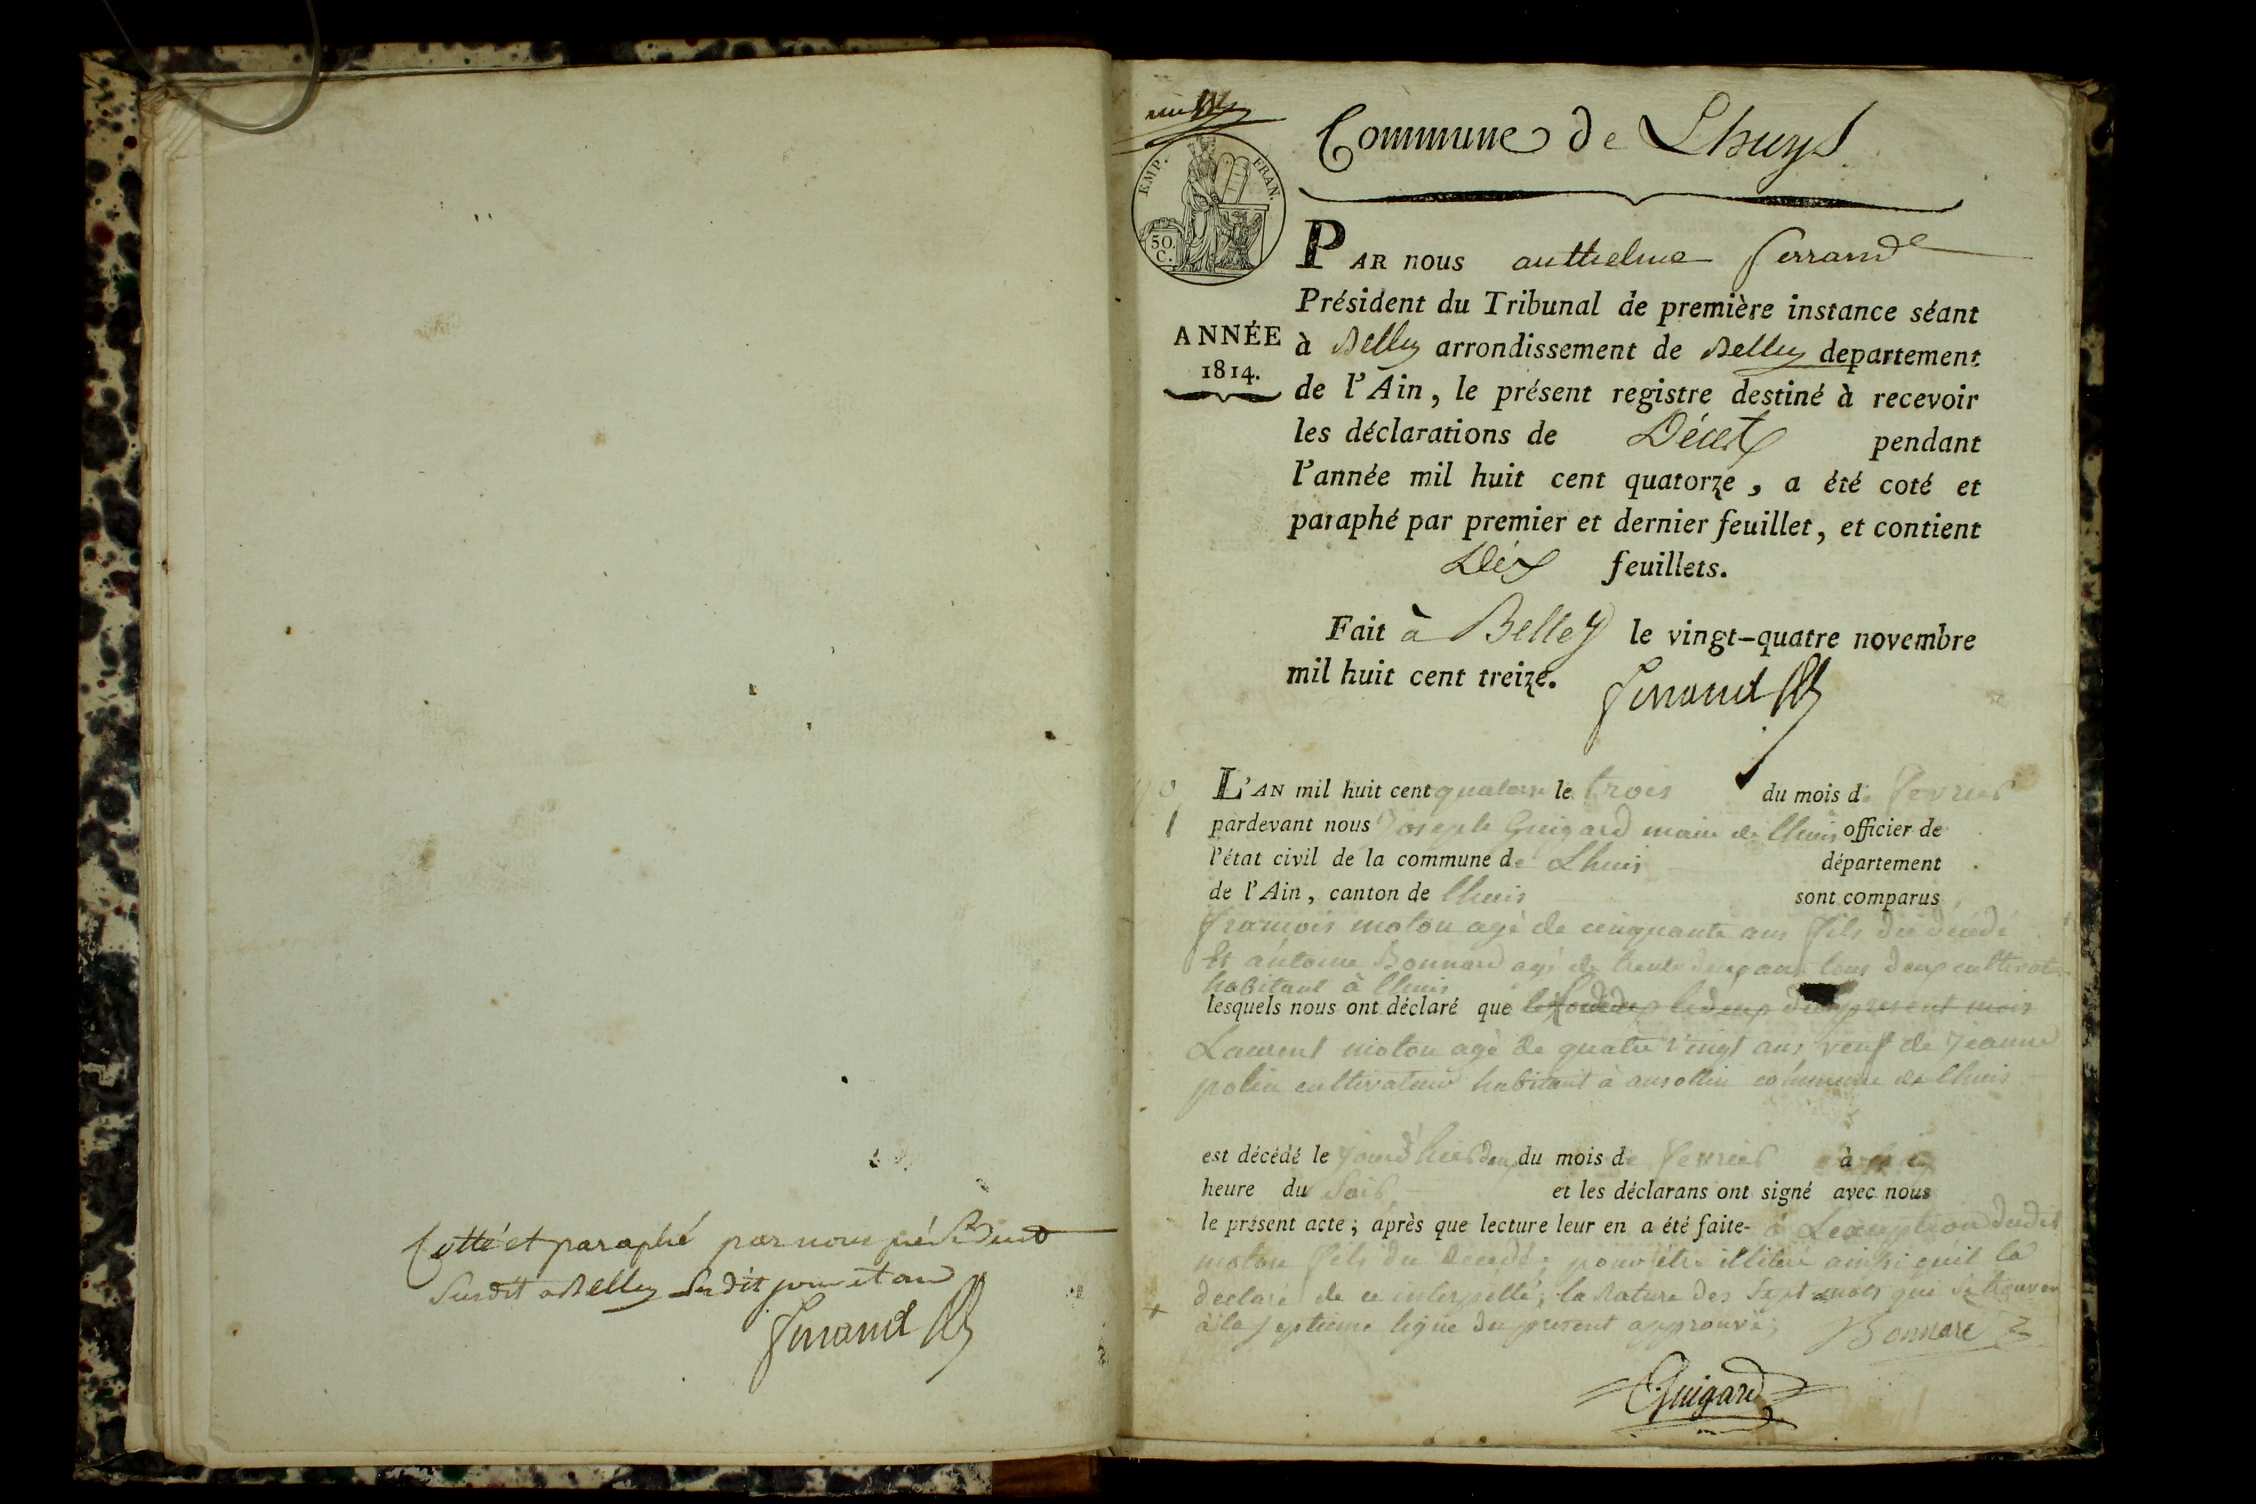 Cotté et paraphé par nous président
Susdit a Belley susdit jour et an
ferrand
EMP. FRAN.
50.
C.
Commune de Lhuys
PAR nous anthelme ferrand
Président du Tribunal de première instance séant
ANNÉE
1814.
à Belley arrondissement de Belley departement
de l'Ain, le présent registre destiné à recevoir
les déclarations de Décès pendant
l'année mil huit cent quatorze, a été coté et
paraphé par premier et dernier feuillet, et contient
Dix feuillets.
Fait à Belley le vingt-quatre novembre
mil huit cent treize.
ferrand
1
L'AN mil huit cent quatorze le trois du mois de fevrier
pardevant nous Joseph Guigard maire de lhuis officier de
l'état civil de la commune de Lhuis département
de l'Ain, canton de lhuis sont comparus
francois moton agé de cinquante ans fils du décédé
Et antoine Bonnard agé de trente deux ans tous deux cultivateurs
habitant à lhuis
lesquels nous ont déclaré que le deux du present mois
Laurent moton agé de quatre vingt ans veuf de jeanne
cultivateur habitant à ansolin commune de lhuis
est décédé le jourd'hier deux du mois de fevrier à
heure du soir et les déclarans ont signé avec nous
le présent acte; après que lecture leur en a été faite- à Lexception dudit
moton fils du décédé; pour être illitéré ainsi quil la
declaré de ce interpellé; la Rature des Sept mots qui se trouvent
à la septieme ligne du present approuvé;
Bonnard
Guigard